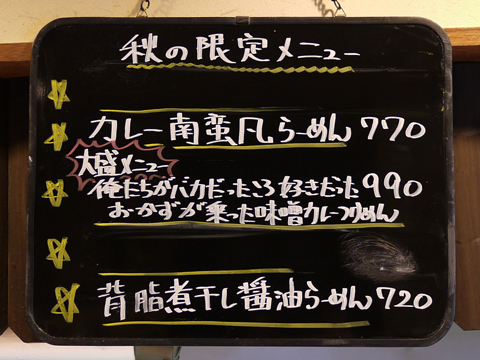 秋の限定メニュー
カレー南蛮風らーめん 770
大盛メニュー
俺たちがバカだったころ好きだった 990
おかずが乗った味噌カレーつけめん
背脂煮干し醤油らーめん 720